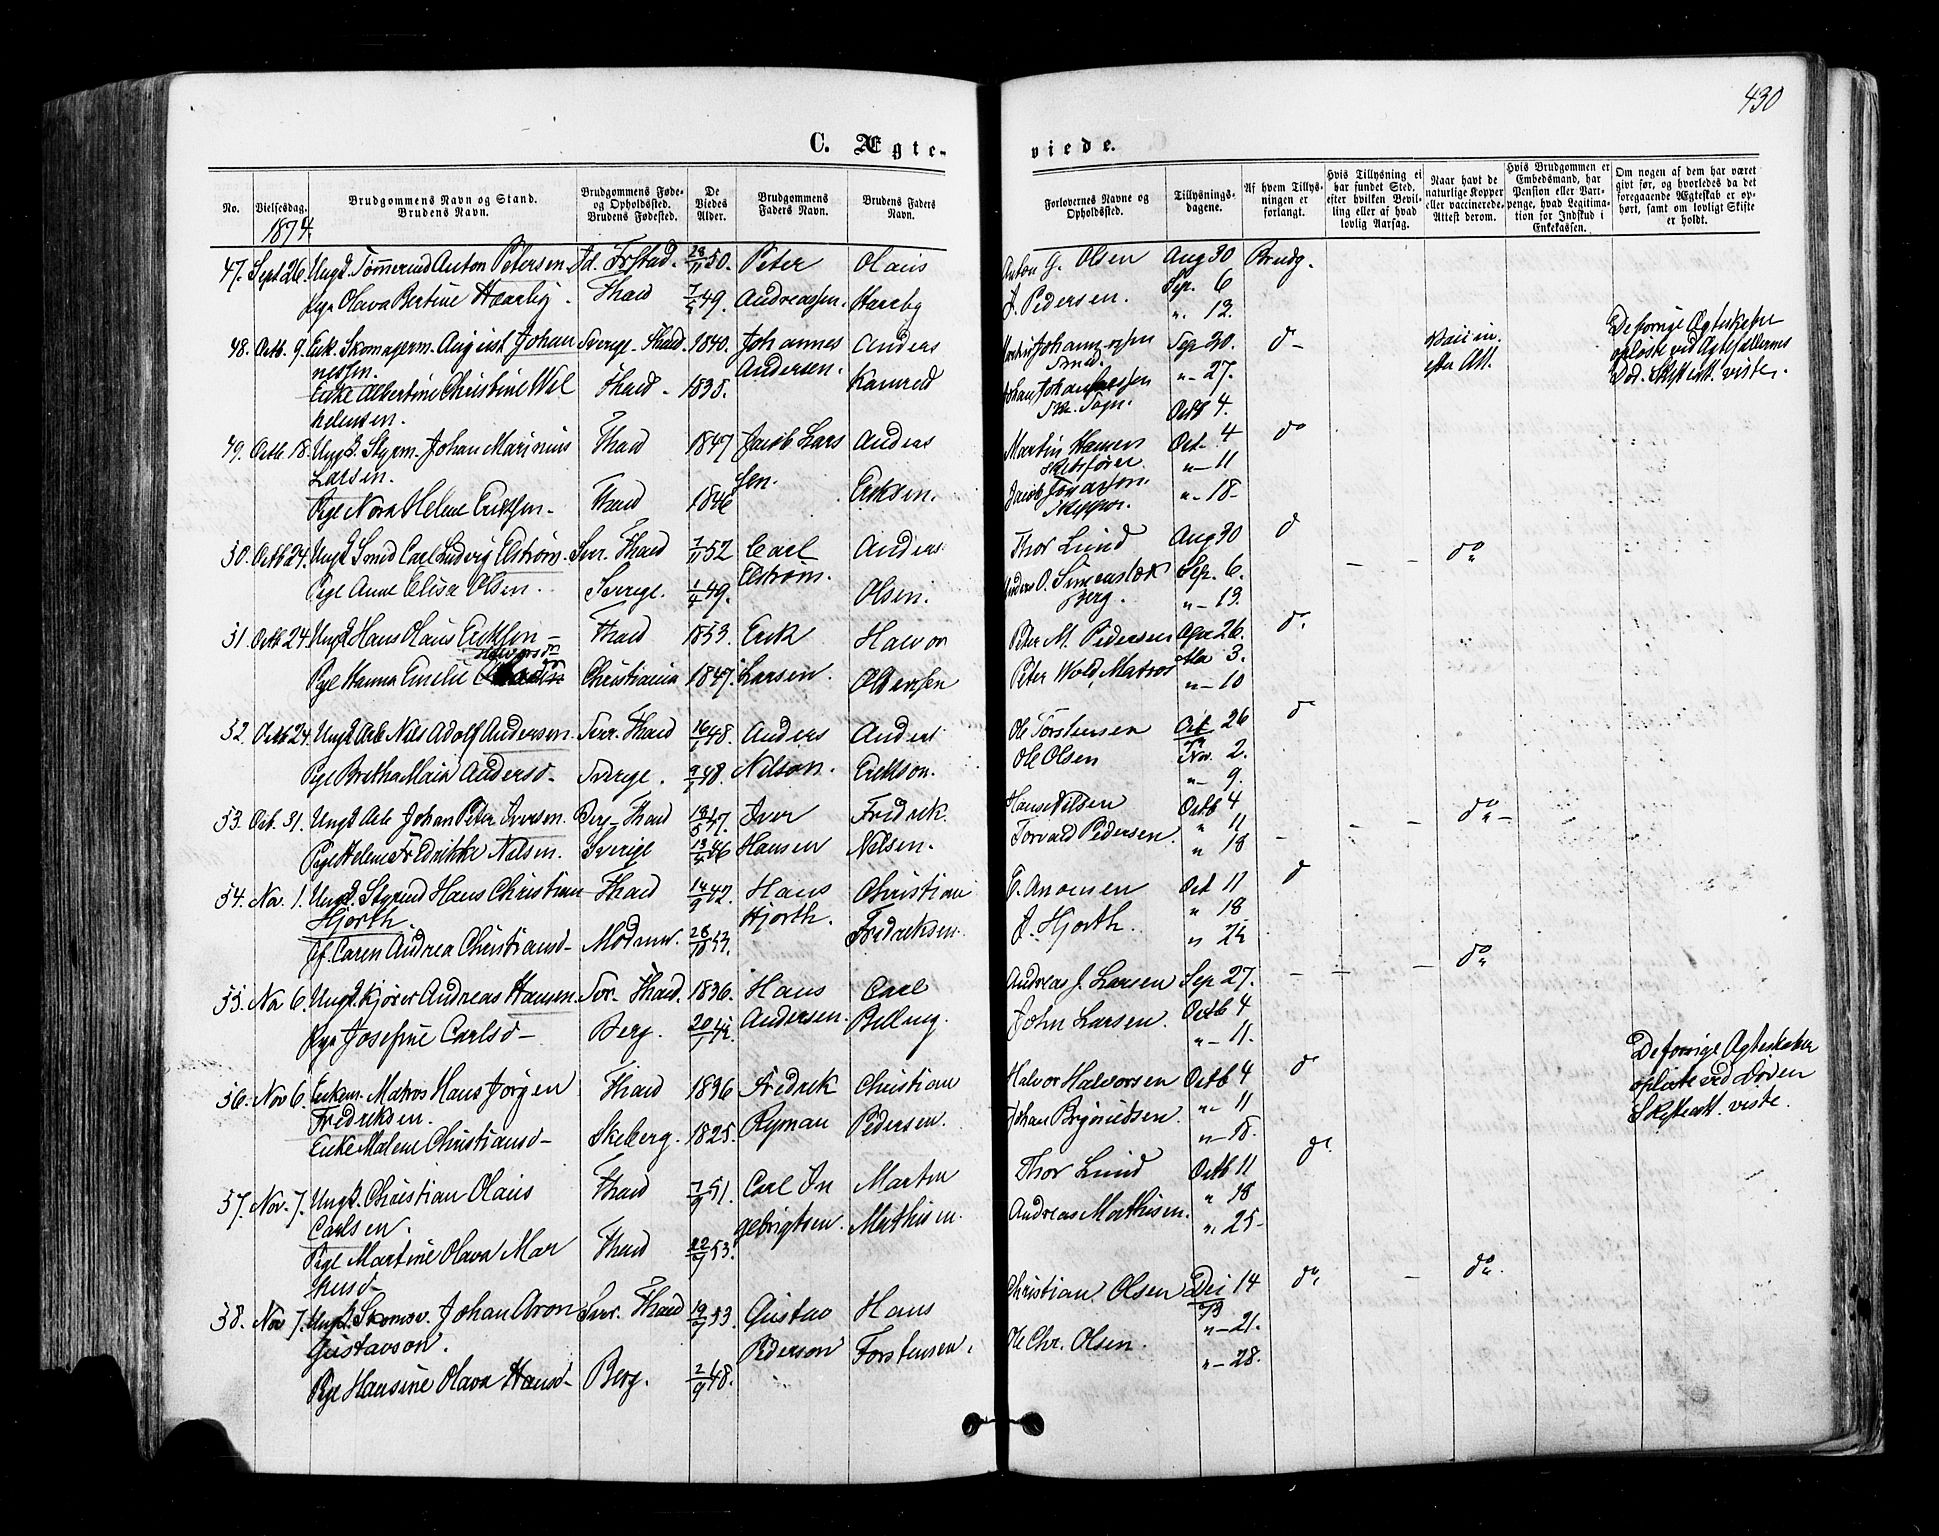 430
C. Ægte-
viede.
No.
Vielsesdag.
Brudgommens Navn og Stand.
Brudens Navn.
Brudgommens Føde-
og Opholdssted.
Brudens Fødested.
De
Viedes
Alder.
Brudgommens
Faders Navn.
Brudens Faders
Navn.
Forlovernes Navne og
Opholdssted.
Tillysnings-
dagene.
Af hvem Tillys-
ningen er
forlangt.
Hvis Tillysning ei
har fundet Sted,
efter hvilken Bevil-
ling eller af hvad
lovlig Aarsag.
Naar havt de
naturlige Kopper
eller vaccinerede,
Attest derom.
Hvis Brudgommen er
Embedsmand, har
Pension eller Vart-
penge, hvad Legitima-
tion for Indskud i
Enkekassen.
Om nogen af dem har været
givt før, og hvorledes da det
foregaaende Ægteskab er op-
hørt, samt om lovligt Skifte
er holdt.
1874.
47. Sept 26. Ungk. Tømmermd Anton Petersen Peter Olaus Anton G. Olsen Aug 30 Brudg.
Pige Olava Bertine Haarby. Fhald 49. Andreassen. Haarby J. Pedersen. Sep. 6
" 13.
48. Octb. 9. Enk. Skomagerm. August Johan Sverige - Fhald. 1840. Johannes Anders Johannessen Sep 20. do
nessen. Andersen. Smed. De forrige Ægteskaber
Enke Albertine Christine Wil Fhald. 1835. "- 27. efter Att. opløste ved Ægtefællernes
helmsen. Octb 4. Død. Skifteatt. viste.
49. Octb. 18. Ungk. Styrm. Johan Marinius Fhald 1847 Jacob Lars Anders Martin Hansen Oct. 4 do
Larsen. sen. "- 11
Pige Nora Helene Eriksen Fhald 1846 Eriksen. Skipper. "- 18-
50. Octb 24. Ungk Smed Carl Ludvig Elstrøm. Sver. Fhald 7/11 52 Carl Anders Thor Lund Aug 30 do
Pige Anne Elisa Olsen. Sverige. 1/4 49. Elstrøm. Olsen. Berg. Sep. 6. do
"- 13.
51. Octb 24. Ungk Hans Olaus Eriksen - Fhald 1853. Erik Halvor Peter M. Pedersen Apr 26. do
Halvorsd
Pige Hanna Emilie Christiania 1847. Larsen. Peter Wold, Matros Ma 3.
"- 10
52. Octb 24. Ungk Arb Nils Adolf Andersen. Sver. Fhald 16/1 48. Anders Anders Ole Torstensen Oct 26 do
Pige Bretha Maia Andersd - Sverige. 48. Nilson. Erikson. Ole Olsen Nov. 2.
"- 9.
53. Oct. 31. Ungk Arb Johan Peter Iversen. Berg - Fhald 47. Iver Fredrik Hans Nilsen Octb 4 do
Pige Helene Fredrikke Nilsen. Sverige 46 Hansen Nilsen. Torvald Pedersen. " 11
" 18
54. Nov. 1. Ungk. Styrmd Hans Christian Fhald 14/9 42. Hans Christian Oct 11 do
Hjorth. Hjorth. " 18
Jf. Caren Andrea Christiansd - 28/10 53. Fredriksen. J. Hjorth.
55. Nov 6. Ungk. Kjører Andreas Hansen. Sver. Fhald. 1836. Hans Carl Andreas J. Larsen Sep 27. do
Pige Josefine Carlsd - Berg. Andersen. John Larsen. Octb 4
"- 11.
56. Nov 6. Enkem. Matros Hans Jørgen Fhald 1836 Fredrik Christian Halvor Halvorsen Octb 4 do De forrige Ægteskaber
Fredriksen. "- 11 opløste ved Døden
Enke Malene Christiansd - Skeberg. 1825. Ryman Pedersen. Skifteatt. viste.
"- 18.
57. Nov. 7. Ungk. Christian Olaus Fhald 7/9 51. Carl In Martin Thor Lund Octb 11 do
Carlsen. gebrigtsen. Mathisen. Andreas Mathisen. " 18
Pige Martine Olava Mar Fhald 53. " 25-
thisd -
58. Nov 7. Ungk. Skomv. Johan Aron Sver. Fhald 53. Gustav Hans Christian Olsen 14 do do
Gustavson. Pederson Torstensen. Ole Chr. Olsen. "- 21.
Pige Hansine Olava Hansd - Berg. 2/9 48. "- 28.